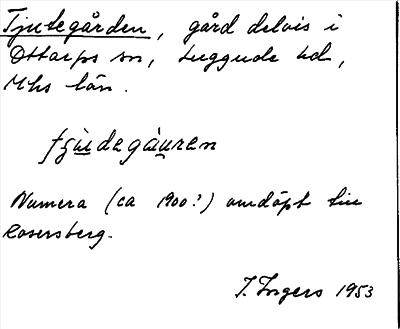 Tjutegården, gård delvis i
Ottarps sn, Luggude hd,
Mhs län.
Numera (ca 1900?) omdöpt till
Rosersberg.
I. Ingers 1953